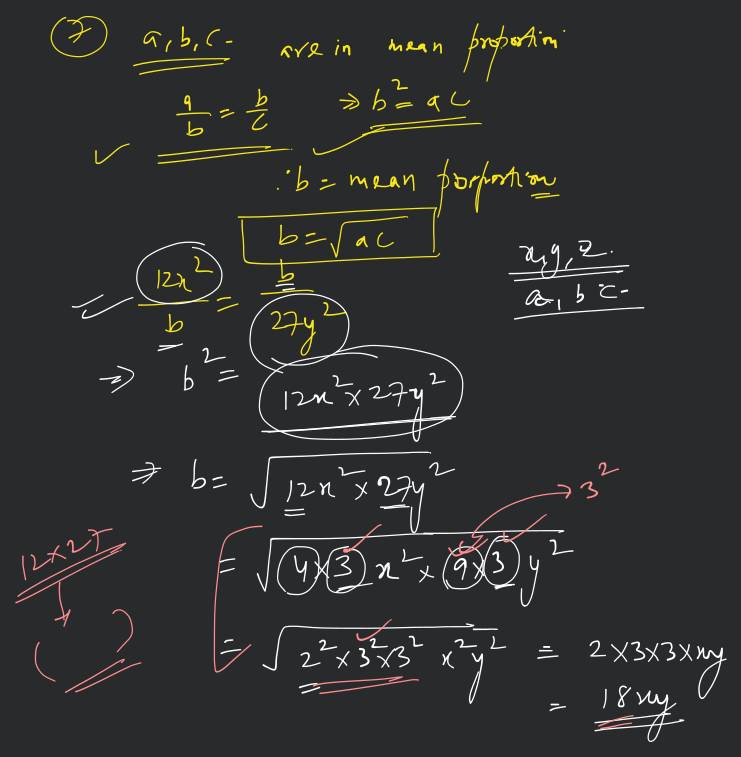 ⑦ a, b, c - are in mean proportion
a/b = b/c ⇒ b² = ac
∴ b = mean proportion
b = √ac
x, y, z.
a, b c -
12x²/b = b/27y²
⇒ b² = 12x² × 27y²
⇒ b = √12x² × 27y²
→ 3²
12×27
= √4×3 x² × 9×3 y²
( )
= √2² × 3² × 3² x² y² = 2×3×3×xy
= 18xy